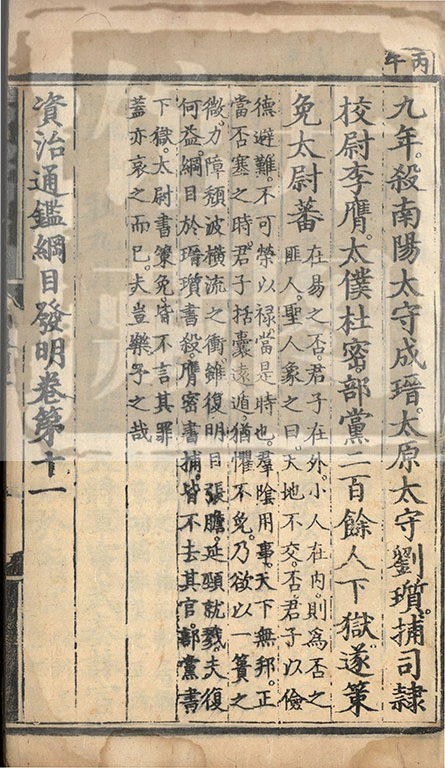 丙午
九年。殺南陽太守成瑨。太原太守劉瓆。捕司隸
校尉李膺。太僕杜密。部黨二百餘人下獄。遂策
免太尉蕃
在易之否。君子在外。小人在內。則為否之
匪人。聖人象之曰。天地不交。否。君子以儉
德避難。不可榮以祿。當是時也。羣陰用事。天下無邦。正
當否塞之時。君子括囊遠遁。猶懼不免。乃欲以一簣之
微。力障頹波橫流之衝。雖復明目張膽。延頸就戮。夫復
何益。綱目於瑨瓆書殺。膺密書捕。皆不去其官。部黨書
下獄。太尉書策免。皆不言其罪
蓋亦哀之而已。夫豈樂予之哉
資治通鑑綱目發明卷第十一